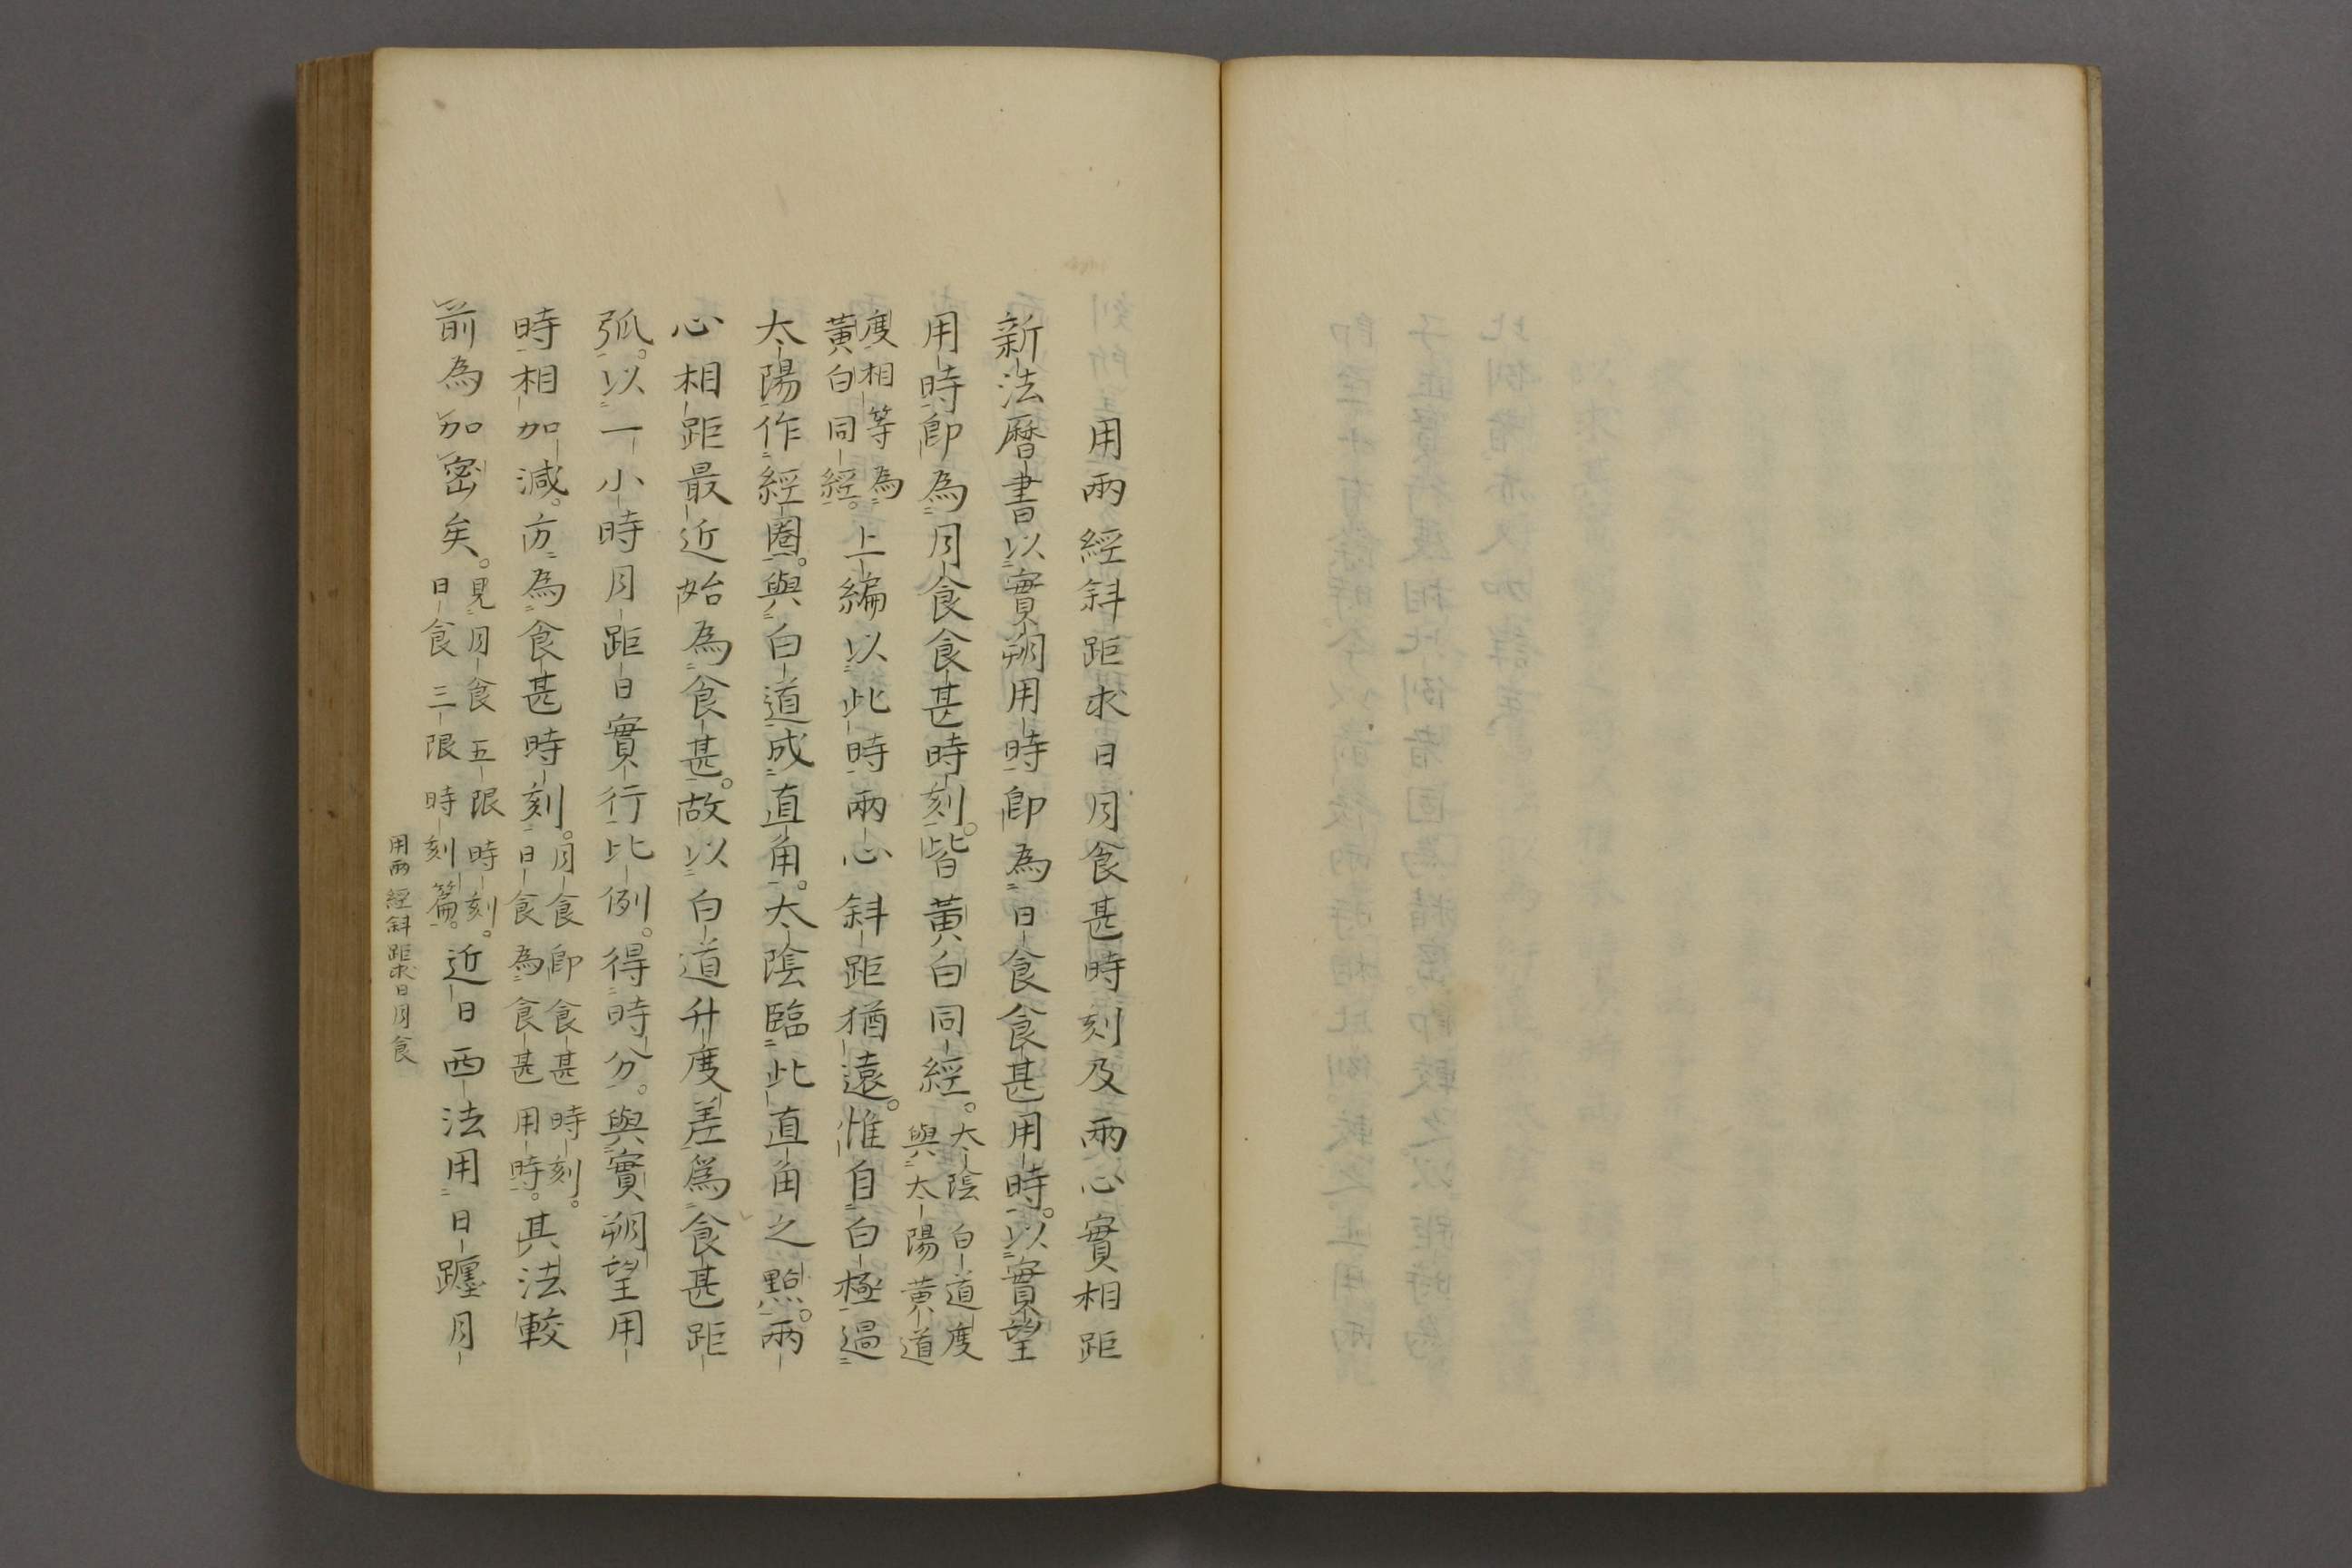 用兩經斜距求日月食甚時刻及兩心實相距
新法曆書以實朔用時卽為日食食甚用時。以實望
用時卽為月食食甚時刻。皆黃白同經。太陰白道度
與太陽黃道
度相等為
黃白同經。上編以此時兩心斜距猶遠。惟自白極過
太陽作經圈。與白道成直角。太陰臨此直角之點。兩
心相距最近始為食甚。故以白道升度差爲食甚距
弧。以一小時月距日實行比例。得時分。與實朔望用
時相加減。方為食甚時刻。月食卽食甚時刻。
日食為食甚用時。其法較
前為加密矣。見月食五限時刻。
日食三限時刻篇。近日西法用日躔月
用兩經斜距求日月食